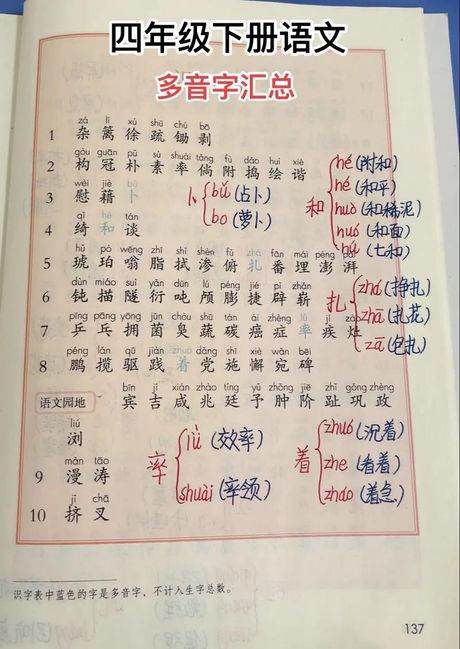 四年级下册语文
多音字汇总
zá lí xú shū chú bō
1 杂 篱 徐 疏 锄 剥
gòu guān pǔ sù shuài tǎng fù dǎo huì xié
2 构 冠 朴 素 率 倘 附 捣 绘 谐
wèi jiè bǔ
3 慰 藉 卜
卜 bǔ (占卜)
bo (萝卜)
和 hé (附和)
hé (和平)
huò (和稀泥)
huó (和面)
hú (七和)
qǐ hé tán
4 绮 和 谈
hǔ pò wēng zhī shì shèn fǔ zhā fān mái péng pài
5 琥 珀 嗡 脂 拭 渗 俯 扎 番 埋 澎 湃
dùn miáo suì yǎn dūn lú péng jié pì zhǎn
6 钝 描 隧 衍 吨 颅 膨 捷 辟 崭
扎 zhá (挣扎)
zhā (扎花)
zā (包扎)
pīng pāng yōng jūn chòu shū tàn ái zhèng lǜ jí zāo
7 乒 乓 拥 菌 臭 蔬 碳 癌 症 率 疾 灶
péng lǎn qū jiàn zhuó dǎng shī xiè wǎn bēi
8 鹏 揽 驱 践 着 党 施 懈 宛 碑
bīn jí xián zhào tíng yǔ zhǒng jiē zhǐ gǒng zhèng
语文园地 宾 吉 咸 兆 廷 予 肿 阶 趾 巩 政
liú
浏
màn tāo
9 漫 涛
jǐ chā
10 挤 叉
率 lǜ (效率)
shuài (率领)
着 zhuó (沉着)
zhe (看着)
zháo (着急)
识字表中蓝色的字是多音字，不计入生字总数。
137